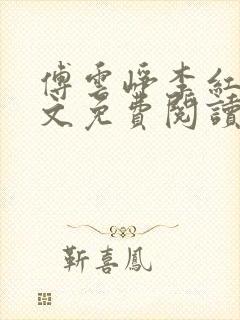 傅雲崢李紅
文免費閱讀
靳喜鳳